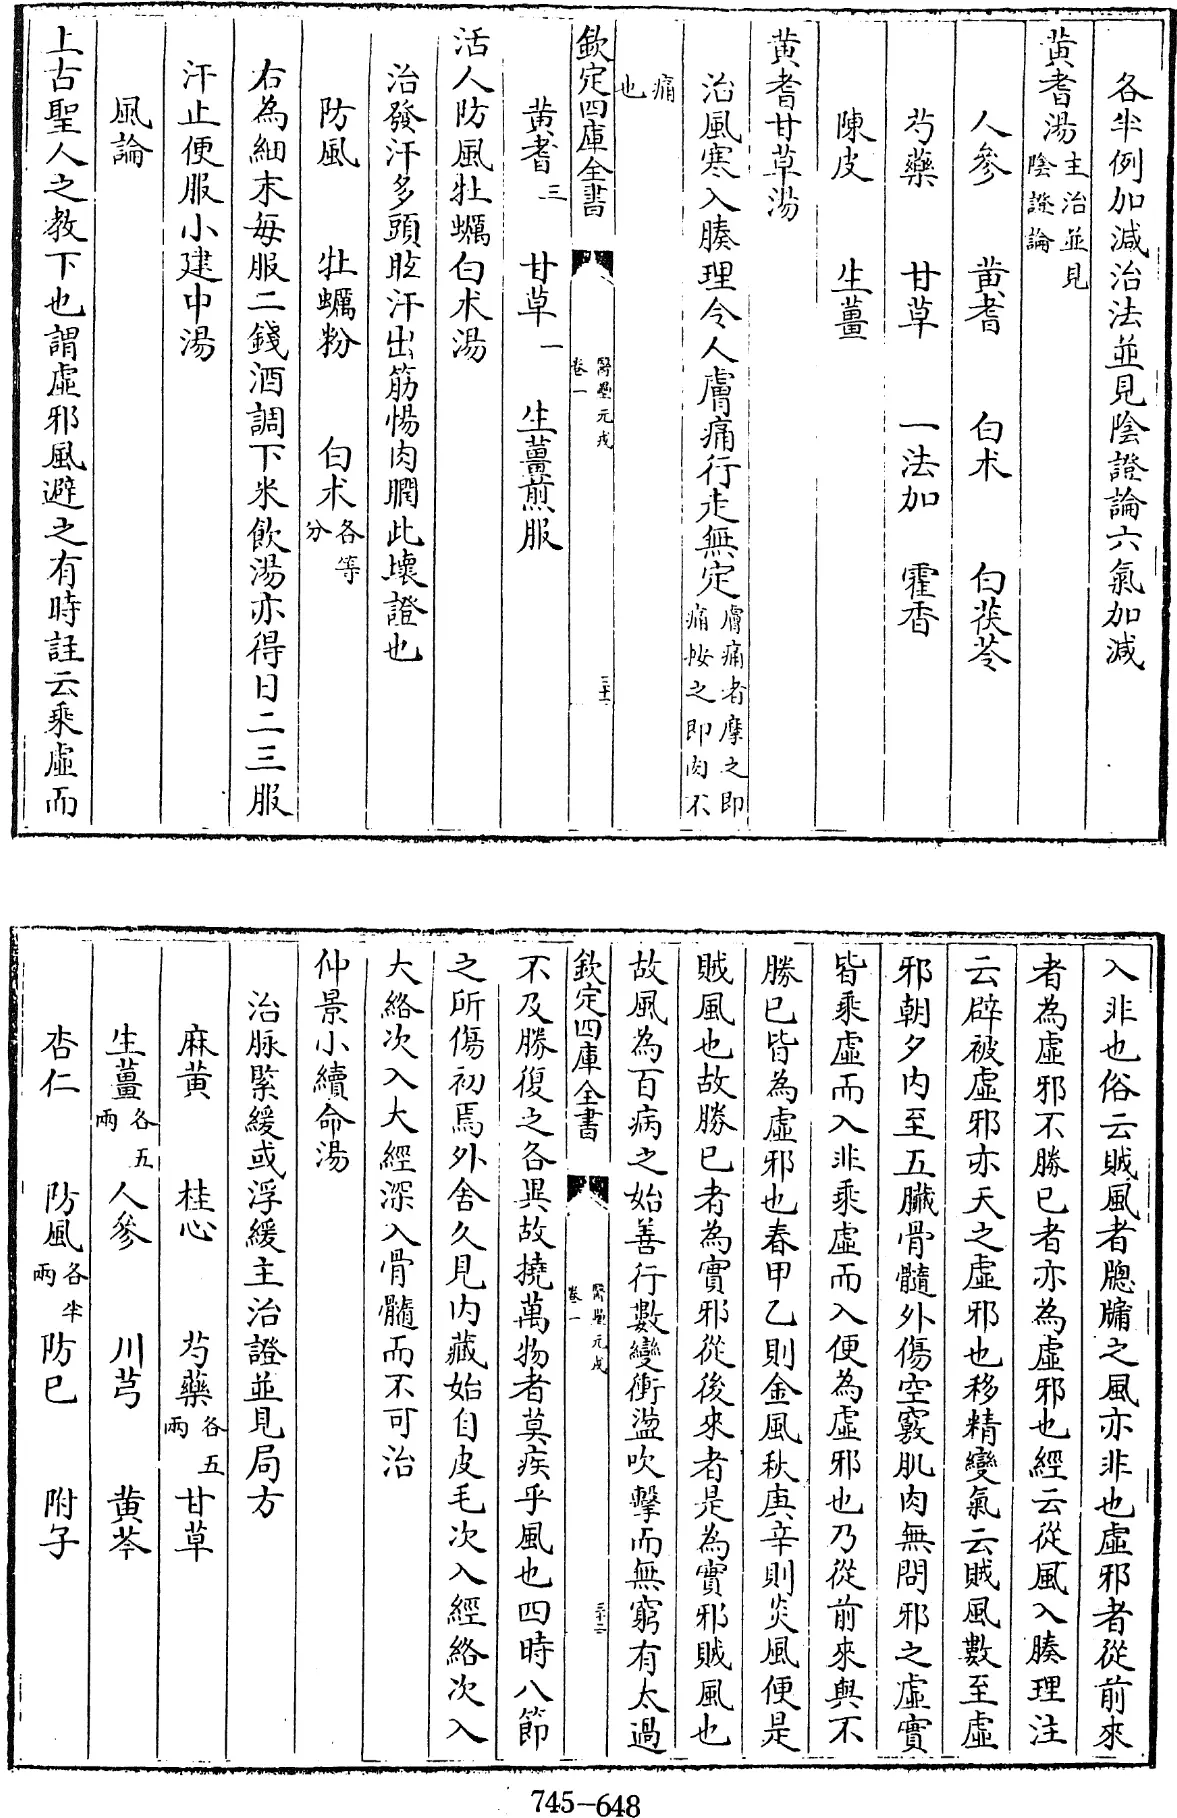 各半例加減治法並見陰證論六氣加減
黃耆湯主治並見陰證論
人參　黃耆　白术　白茯苓
芍藥　甘草　一法加　霍香
陳皮　生薑
黃耆甘草湯
治風寒入腠理令人膚痛行走無定膚痛者摩之即痛按之即肉不
痛也
欽定四庫全書　醫壘元戎卷一　三十一
黃耆三　甘草一　生薑煎服
活人防風牡蠣白术湯
治發汗多頭眩汗出筋惕肉瞤此壞證也
防風　牡蠣粉　白术各等分
右為細末每服二錢酒調下米飲湯亦得日二三服
汗止便服小建中湯
風論
上古聖人之教下也謂虛邪風避之有時註云乘虛而
入非也俗云賊風者牎牖之風亦非也虛邪者從前來
者為虛邪不勝已者亦為虛邪也經云從風入腠理注
云辟被虛邪亦天之虛邪也移精變氣云賊風數至虛
邪朝夕内至五臟骨髓外傷空竅肌肉無問邪之虛實
皆乘虛而入非乘虛而入便為虛邪也乃從前來與不
勝已皆為虛邪也春甲乙則金風秋庚辛則炎風便是
賊風也故勝已者為實邪從後來者是為實邪賊風也
故風為百病之始善行數變衝盪吹擊而無窮有太過
欽定四庫全書　醫壘元戎卷一　三十二
不及勝復之各異故撓萬物者莫疾乎風也四時八節
之所傷初焉外舍久見内藏始自皮毛次入經絡次入
大絡次入大經深入骨髓而不可治
仲景小續命湯
治脉緊緩或浮緩主治證並見局方
麻黃　桂心　芍藥各五兩　甘草
生薑各五兩　人參　川芎　黃芩
杏仁　防風各半兩　防已　附子
745-648